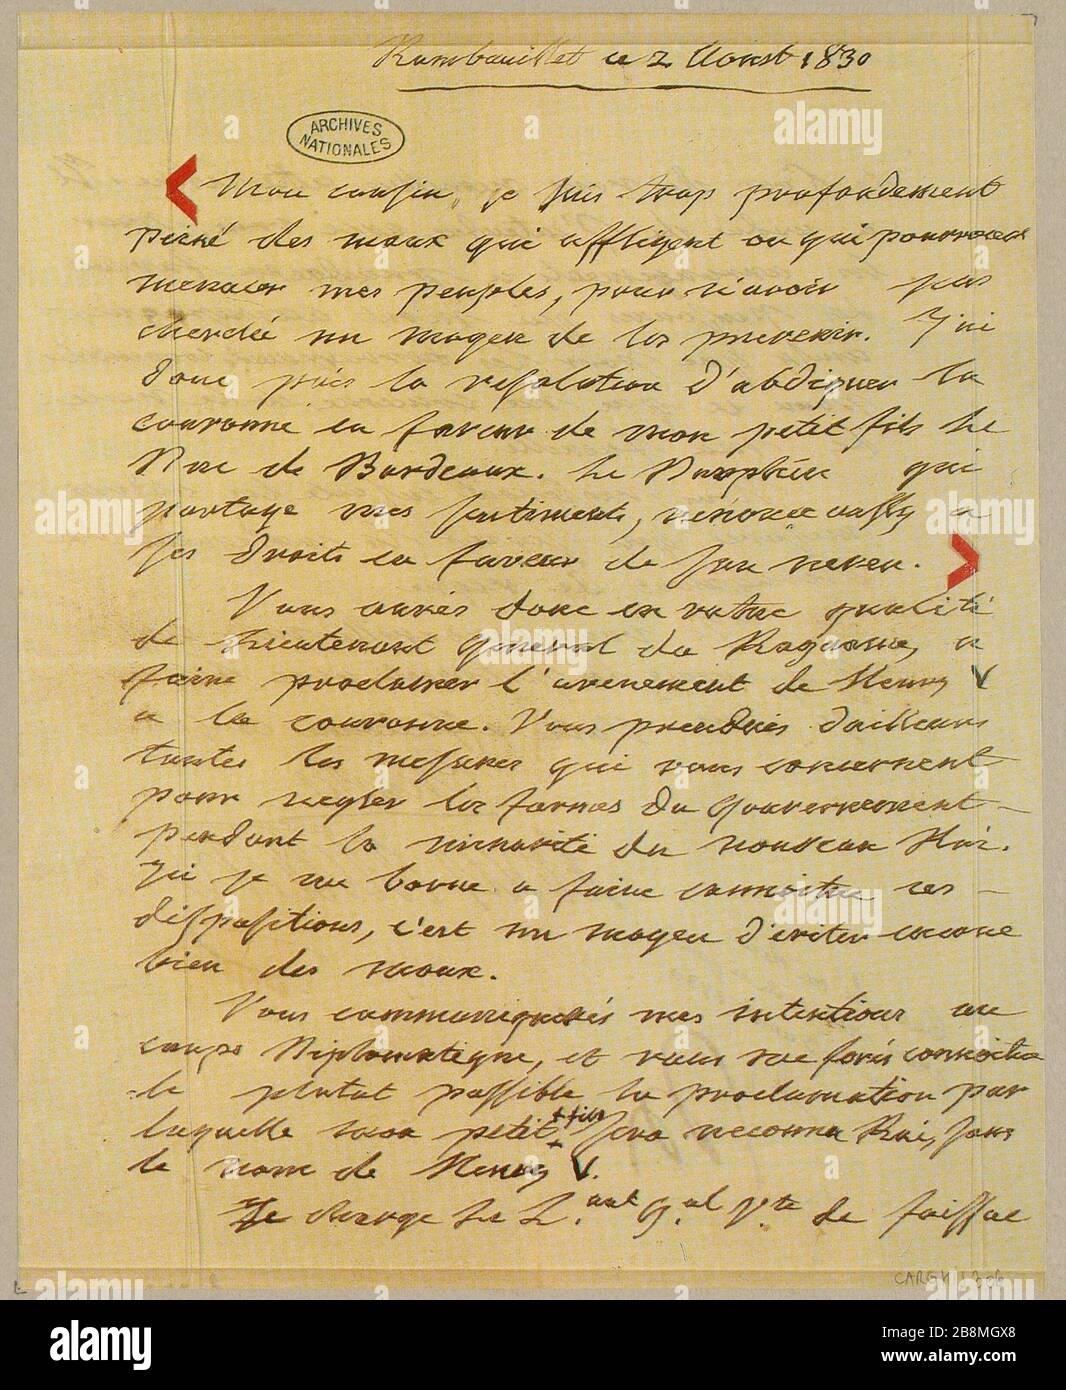 Rambouillet ce 2 Aoust 1830
ARCHIVES
NATIONALES
Mon cousin, je suis trop profondement
peiné des maux qui affligent ou qui pourroient
menacer mes peuples, pour n'avoir pas
cherché un moyen de les prevenir. J'ai
donc pris la resolution d'abdiquer la
couronne en faveur de mon petit fils le
Duc de Bordeaux. Le Dauphin qui
partage mes sentiments, rénonce aussy a
ses droits en faveur de son neveu.
Vous aurés donc en votre qualité
de Lieutenant General du Royaume, a
faire proclamer l'avenement de Henry V
a la couronne. Vous prendrés d'ailleurs
toutes les mesures qui vous concernent
pour regler les formes du gouvernement
pendant la minorité du nouveau Roi.
Ici je me borne a faire connoitre ces
dispositions, c'est un moyen d'eviter encore
bien des maux.
Vous communiquerés mes intentions au
corps Diplomatique, et vous me ferés connoitre
le plutot possible la proclamation par
laquelle mon petit + fils sera reconnu Roi, sous
le nom de Henry V.
Je charge le L.ant G.al V.te de foissac
CARGY
alamy
Image ID: 2B8MGX8
www.alamy.com